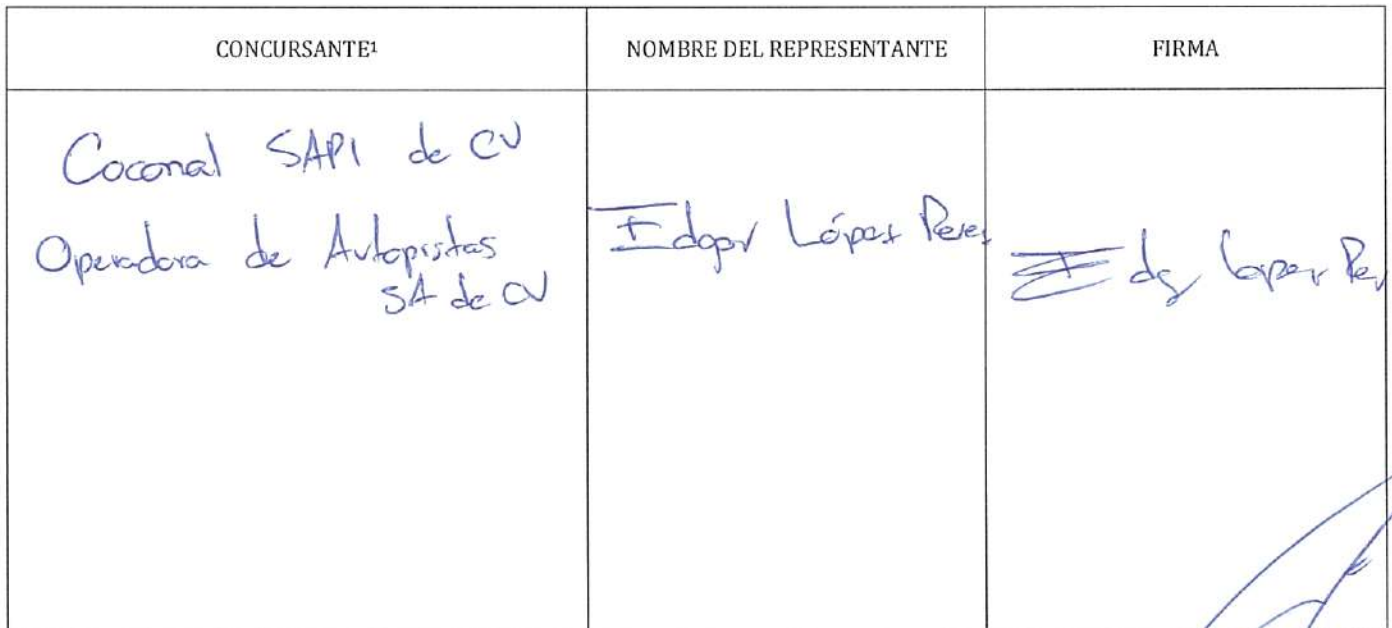 CONCURSANTE¹
NOMBRE DEL REPRESENTANTE
FIRMA
Coconal SAPI de CV
Operadora de Autopistas
SA de CV
Edgar López Perez
Edg Lopez Per